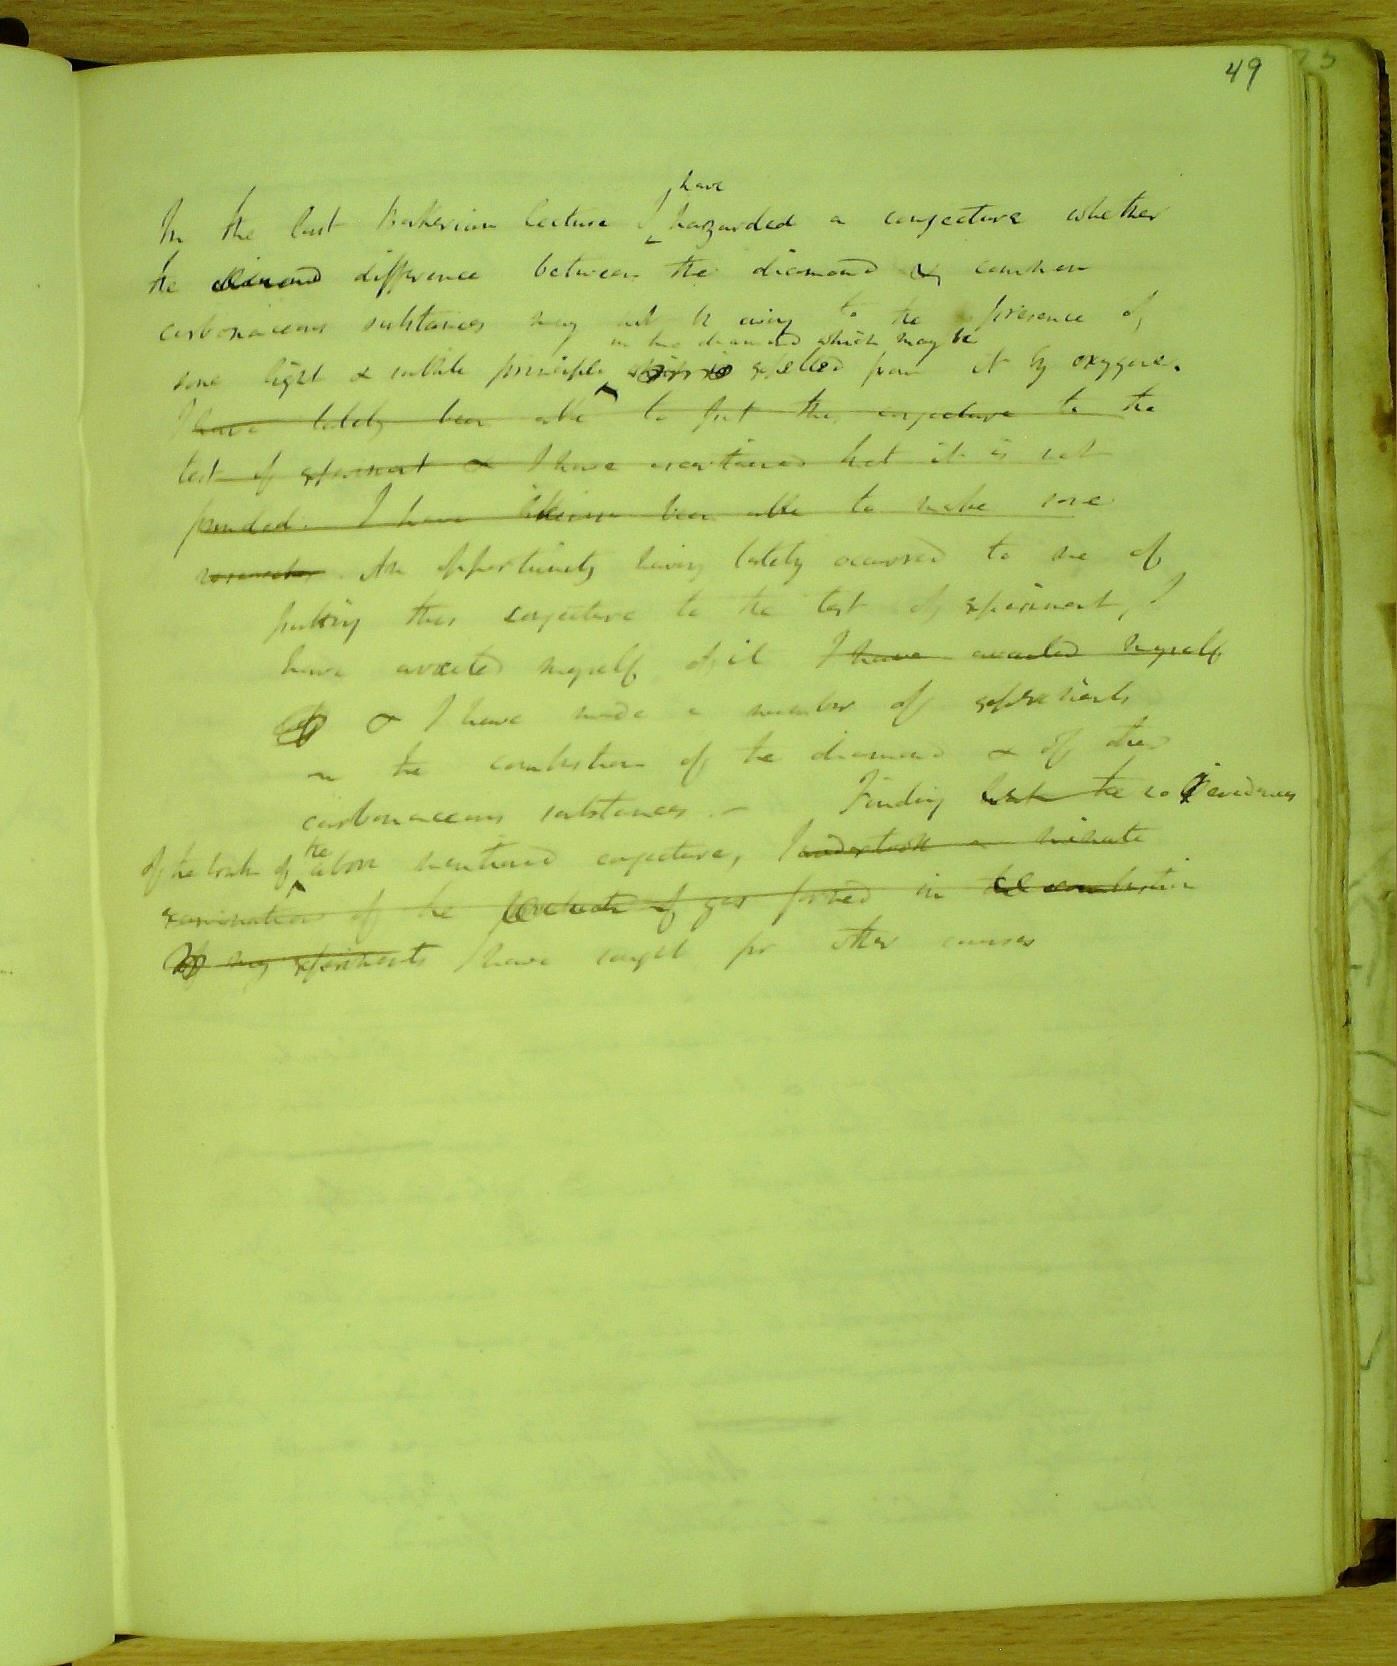 49
have
In the last Bakerian lecture I hazarded a conjecture whether
the diamond difference between the diamond & common
carbonaceous substances may not be owing to the presence of
in the diamond which may be
some light & subtile principle which is expelled from it by oxygene.
I have lately been able to put this conjecture to the
test of experiment & I have ascertained that it is not
founded. I have likewise been able to make some
researches. An opportunity having lately occurred to me of
putting this conjecture to the test of experiment, I
have availed myself of it I have availed myself
of & I have made a number of experiments
on the combustion of the diamond & of other
carbonaceous substances. - Finding the no evidences
the
of the truth of above mentioned conjecture, I undertook a minute
examination of the products of gas formed in the combustion
of my experiments I have sought for other causes